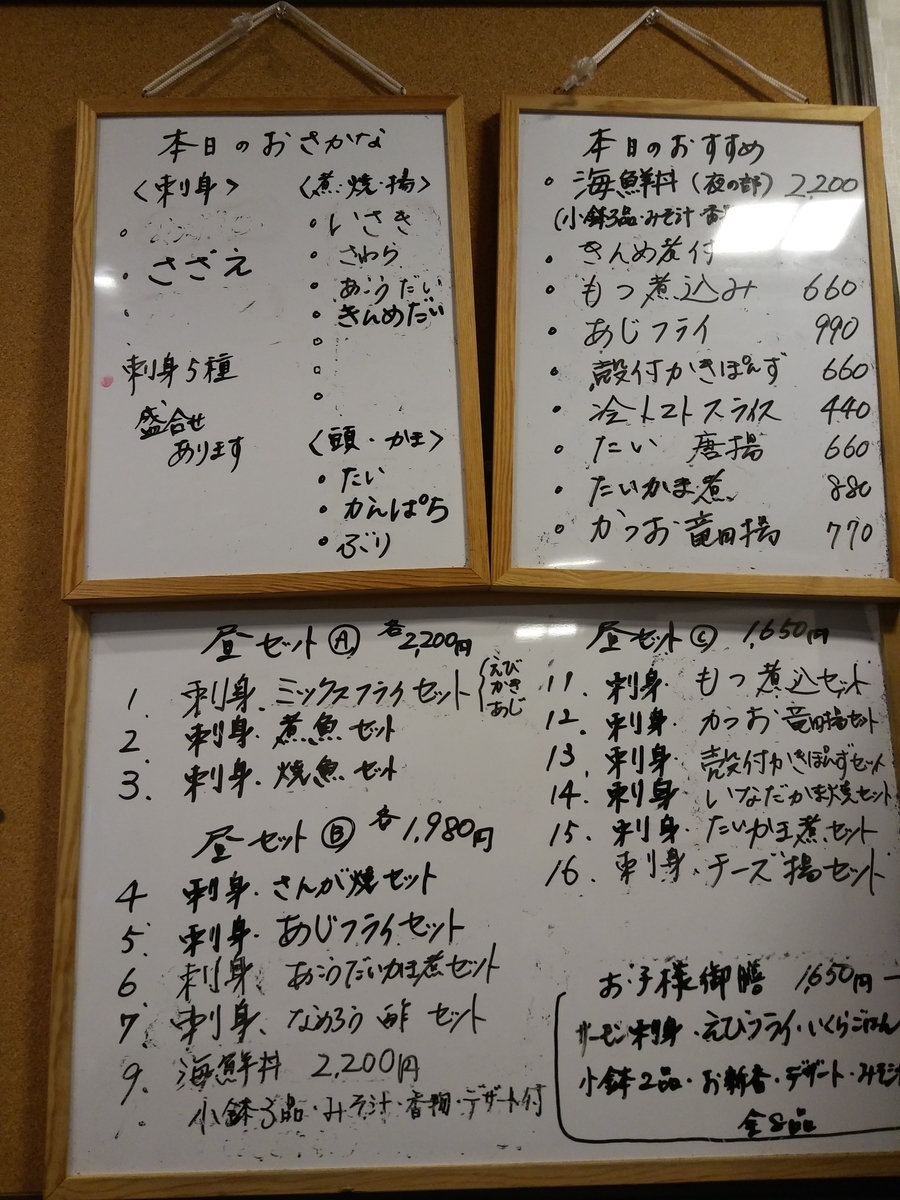 本日のおさかな
〈刺身〉
・さざえ
刺身5種
盛合せ
あります
〈煮・焼・揚〉
・いさき
・さわら
・あこうだい
・きんめだい
〈頭・かま〉
・たい
・かんぱち
・ぶり
本日のおすすめ
・海鮮丼(夜の部) 2,200
(小鉢3品・みそ汁・香
・きんめ煮付
・もつ煮込み 660
・あじフライ 990
・殻付かきぽんず 660
・冷トマトスライス 440
・たい 唐揚 660
・たいかま煮 880
・かつお竜田揚 770
昼セットⒶ 各2,200円
1 刺身.ミックスフライセット えび かき あじ
2 刺身.煮魚セット
3. 刺身.焼魚セット
昼セットⒷ 各1,980円
4 刺身.さんが焼セット
5. 刺身.あじフライセット
6 刺身 あこうだいかま煮セット
7. 刺身.なめろう酢セット
9. 海鮮丼 2,200円
小鉢3品・みそ汁・香物・デザート付
昼セットⒸ 1,650円
11. 刺身.もつ煮込セット
12. 刺身.かつお竜田揚セット
13. 刺身.殻付かきぽんずセット
14. 刺身.いなだかま焼セット
15. 刺身.たいかま煮セット
16. 刺身.チーズ揚セット
お子様御膳 1,650円
サーモン刺身・えびフライ・いくらごはん
小鉢2品・お新香・デザート・みそ汁
全8品